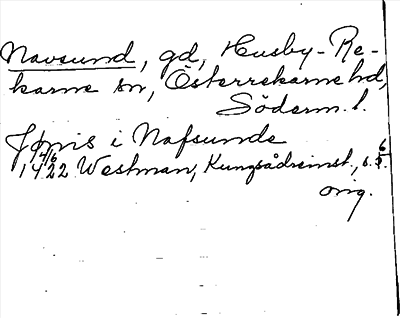 Navsund, gd, Husby-Re-
karne sn, Österrekarne hd,
Söderm. l.
Jönis i Nafsunde
1422 4/6 Westman, Kungsådreinst., s. 6.
orig.